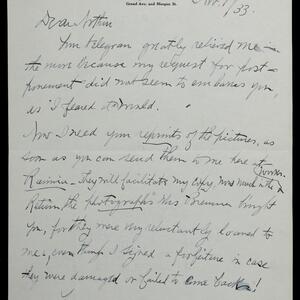 Grand Ave. and Morgan St.
Nov. 9/33.
Dear Arthur
Your telegram greatly relieved me —
the more because my request for post-
ponement did not seem to embarrass you,
as I feared it would.
Now I need your reprints of the pictures, as
soon as you can send them to me here at
They will facilitate my copy,
Return the photographs Mrs Brennan brought
you, for they were very reluctantly loaned to
me, even though I signed a forfeiture in case
they were damaged or failed to come back!